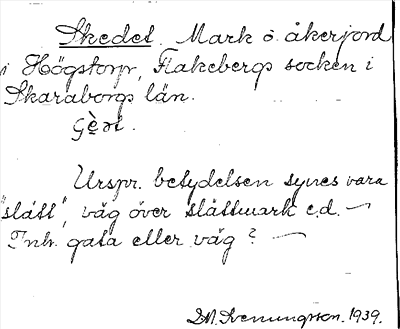 Skedet. Mark o. åkerjord
i Högstorp, Flakebergs socken i
Skaraborgs län.
Urspr. betydelsen synes vara
"slätt", väg över slåttmark e.d. —
Inh. gata eller väg? —
1939.